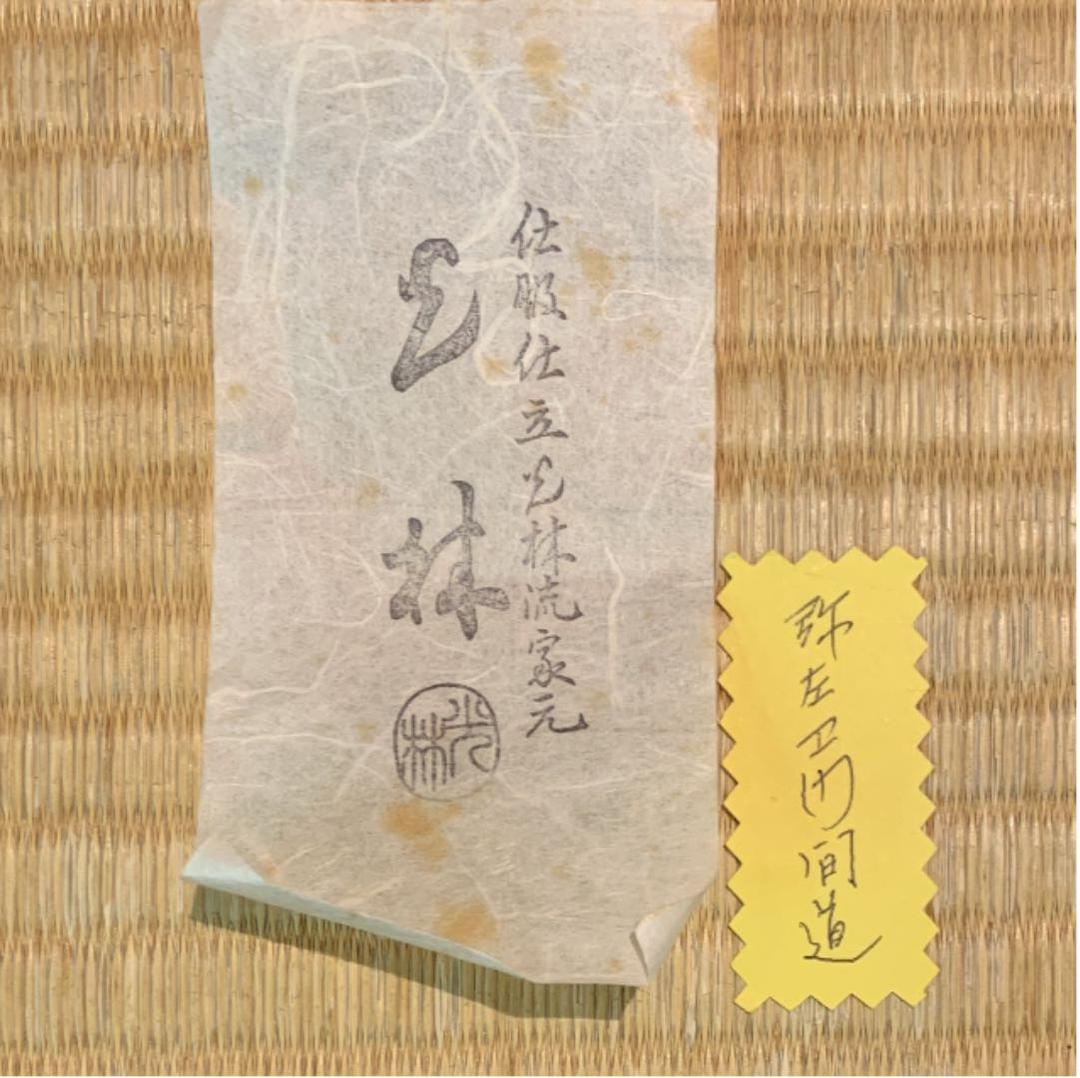 仕服仕立光林流家元
光林
光林
弥左ヱ門間道